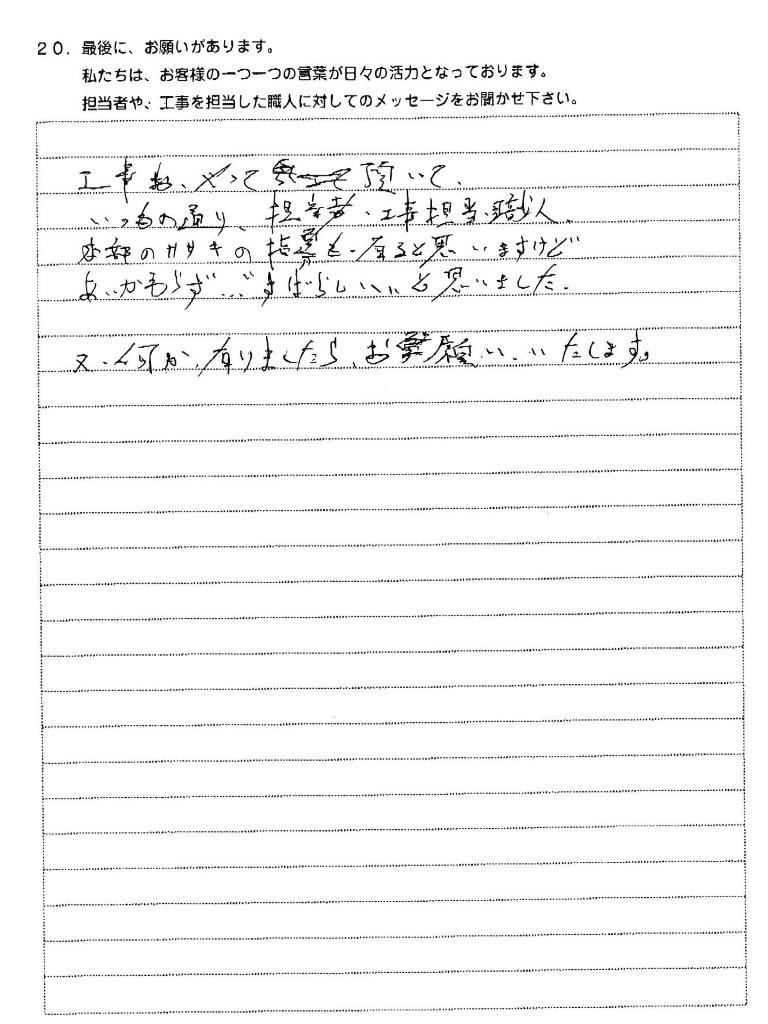 20. 最後に、お願いがあります。
私たちは、お客様の一つ一つの言葉が日々の活力となっております。
担当者や、工事を担当した職人に対してのメッセージをお聞かせ下さい。
工事を、やって頂いて、
いつもの通り、担当者、工事担当、職人、
本部のカサキの指導も有ると思いますけど
あいかわらず…すばらしいと思いました。
又、何か、有りましたら、お願い、いたします。